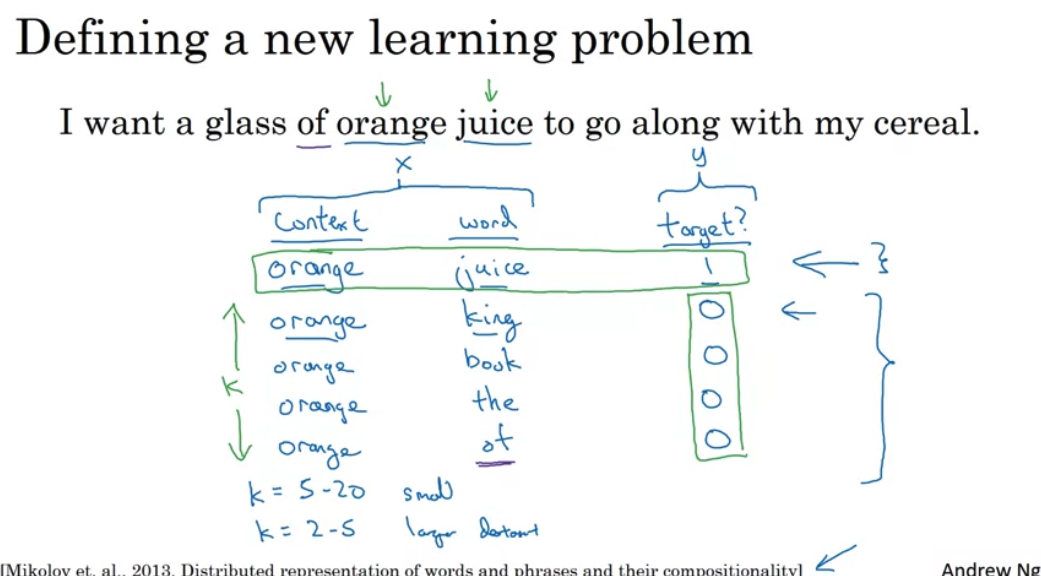 Defining a new learning problem
I want a glass of orange juice to go along with my cereal.
x y
Context word target?
orange juice 1
orange king 0
orange book 0
orange the 0
orange of 0
k
k = 5-20 small
k = 2-5 larger
[Mikolov et. al., 2013. Distributed representation of words and phrases and their compositionality]
Andrew Ng